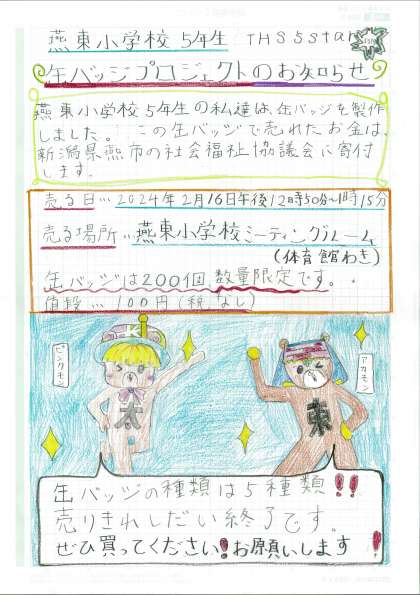 燕東小学校 5年生 THS 5star
缶バッジプロジェクトのお知らせ
燕東小学校5年生の私達は、缶バッジを製作
しました。この缶バッジで売れたお金は、
新潟県燕市の社会福祉協議会に寄付
します。
売る日…2024年2月16日午後12時50分~1時15分
売る場所…燕東小学校ミーティングルーム
(体育館わき)
缶バッジは200個、数量限定です。
値段…100円(税なし)
ピンクモン
アカモン
太
東
缶バッジの種類は5種類!!
売りきれしだい終了です。
ぜひ買ってください!お願いします!